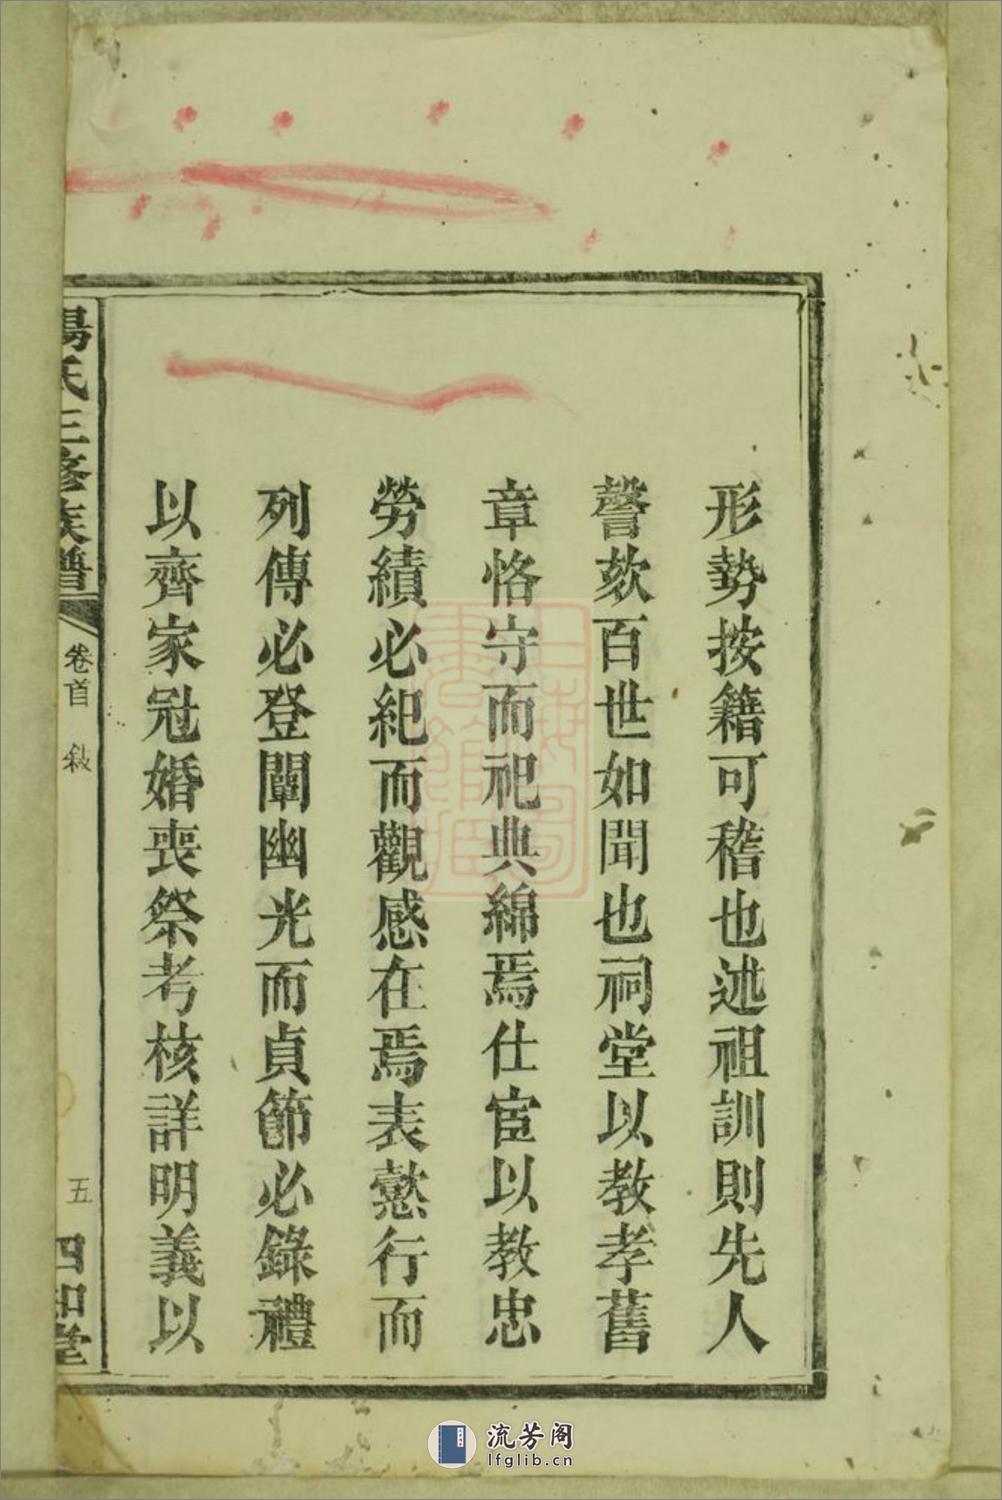 形勢按籍可稽也述祖訓則先人
謦欬百世如聞也祠堂以教孝舊
章恪守而祀典綿焉仕宦以教忠
勞績必紀而觀感在焉表懿行而
列傳必登闡幽光而貞節必錄禮
以齊家冠婚喪祭考核詳明義以
楊氏三修族譜
卷首 敍
五
四知堂
上海圖書館藏
流芳阁
lfglib.cn